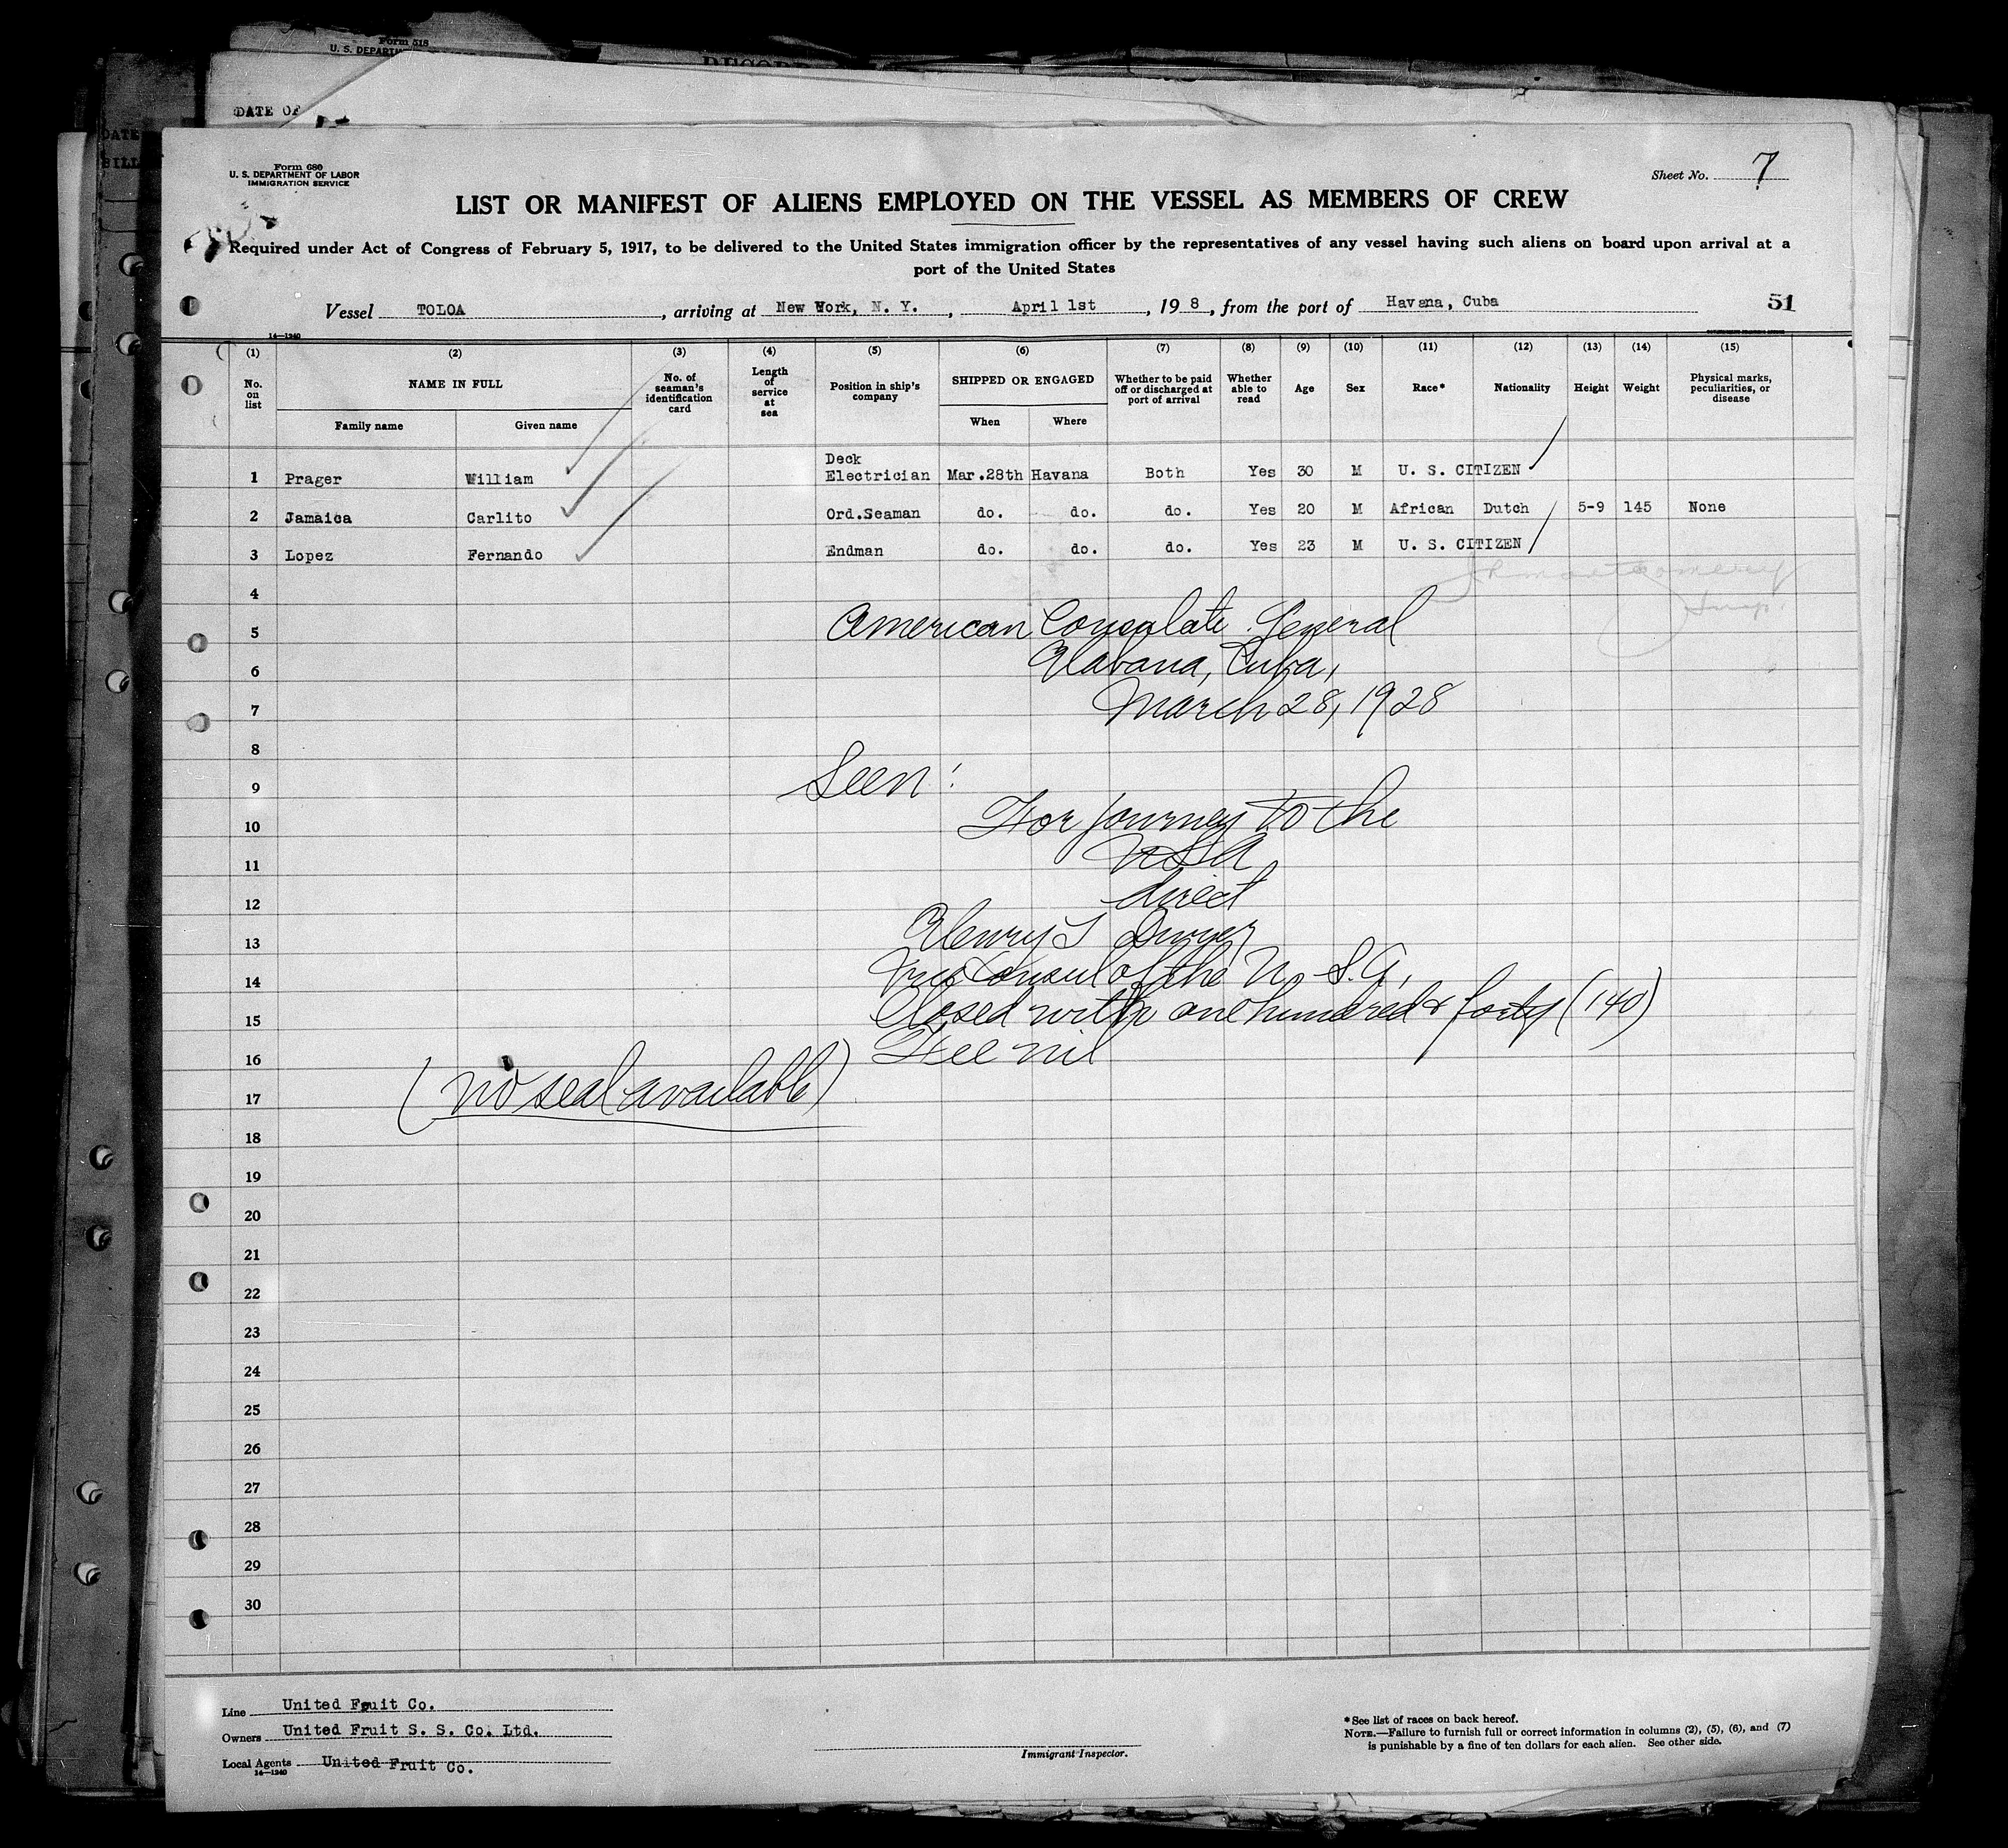 Form 518
U. S. DEPARTM
RECORD
DATE OF
DATE
BILL
Form 680
U. S. DEPARTMENT OF LABOR
IMMIGRATION SERVICE
Sheet No. 7
LIST OR MANIFEST OF ALIENS EMPLOYED ON THE VESSEL AS MEMBERS OF CREW
Required under Act of Congress of February 5, 1917, to be delivered to the United States immigration officer by the representatives of any vessel having such aliens on board upon arrival at a
port of the United States
Vessel TOLOA, arriving at New York, N. Y., April 1st, 19 8, from the port of Havana, Cuba 51
14—1240
(1) (2) (3) (4) (5) (6) (7) (8) (9) (10) (11) (12) (13) (14) (15)
No. on list
NAME IN FULL
Family name
Given name
No. of seaman's identification card
Length of service at sea
Position in ship's company
SHIPPED OR ENGAGED
When
Where
Whether to be paid off or discharged at port of arrival
Whether able to read
Age
Sex
Race*
Nationality
Height
Weight
Physical marks, peculiarities, or disease
1 Prager William Deck Electrician Mar.28th Havana Both Yes 30 M U. S. CITIZEN
2 Jamaica Carlito Ord.Seaman do. do. do. Yes 20 M African Dutch 5-9 145 None
3 Lopez Fernando Endman do. do. do. Yes 23 M U. S. CITIZEN
4
5 American Consulate General
6 Habana, Cuba,
7 March 28, 1928
8
9 Seen:
10 For journey to the
11 USA
12 direct
13 Henry T Dwyer
14 Vice Consul of the U. S. A.
15 Closed with one hundred & forty (140)
16 Fee nil
17 (no seal available)
18
19
20
21
22
23
24
25
26
27
28
29
30
Line United Fruit Co.
Owners United Fruit S. S. Co. Ltd.
Local Agents United Fruit Co.
14—1240
Immigrant Inspector.
*See list of races on back hereof.
NOTE.—Failure to furnish full or correct information in columns (2), (5), (6), and (7)
is punishable by a fine of ten dollars for each alien. See other side.